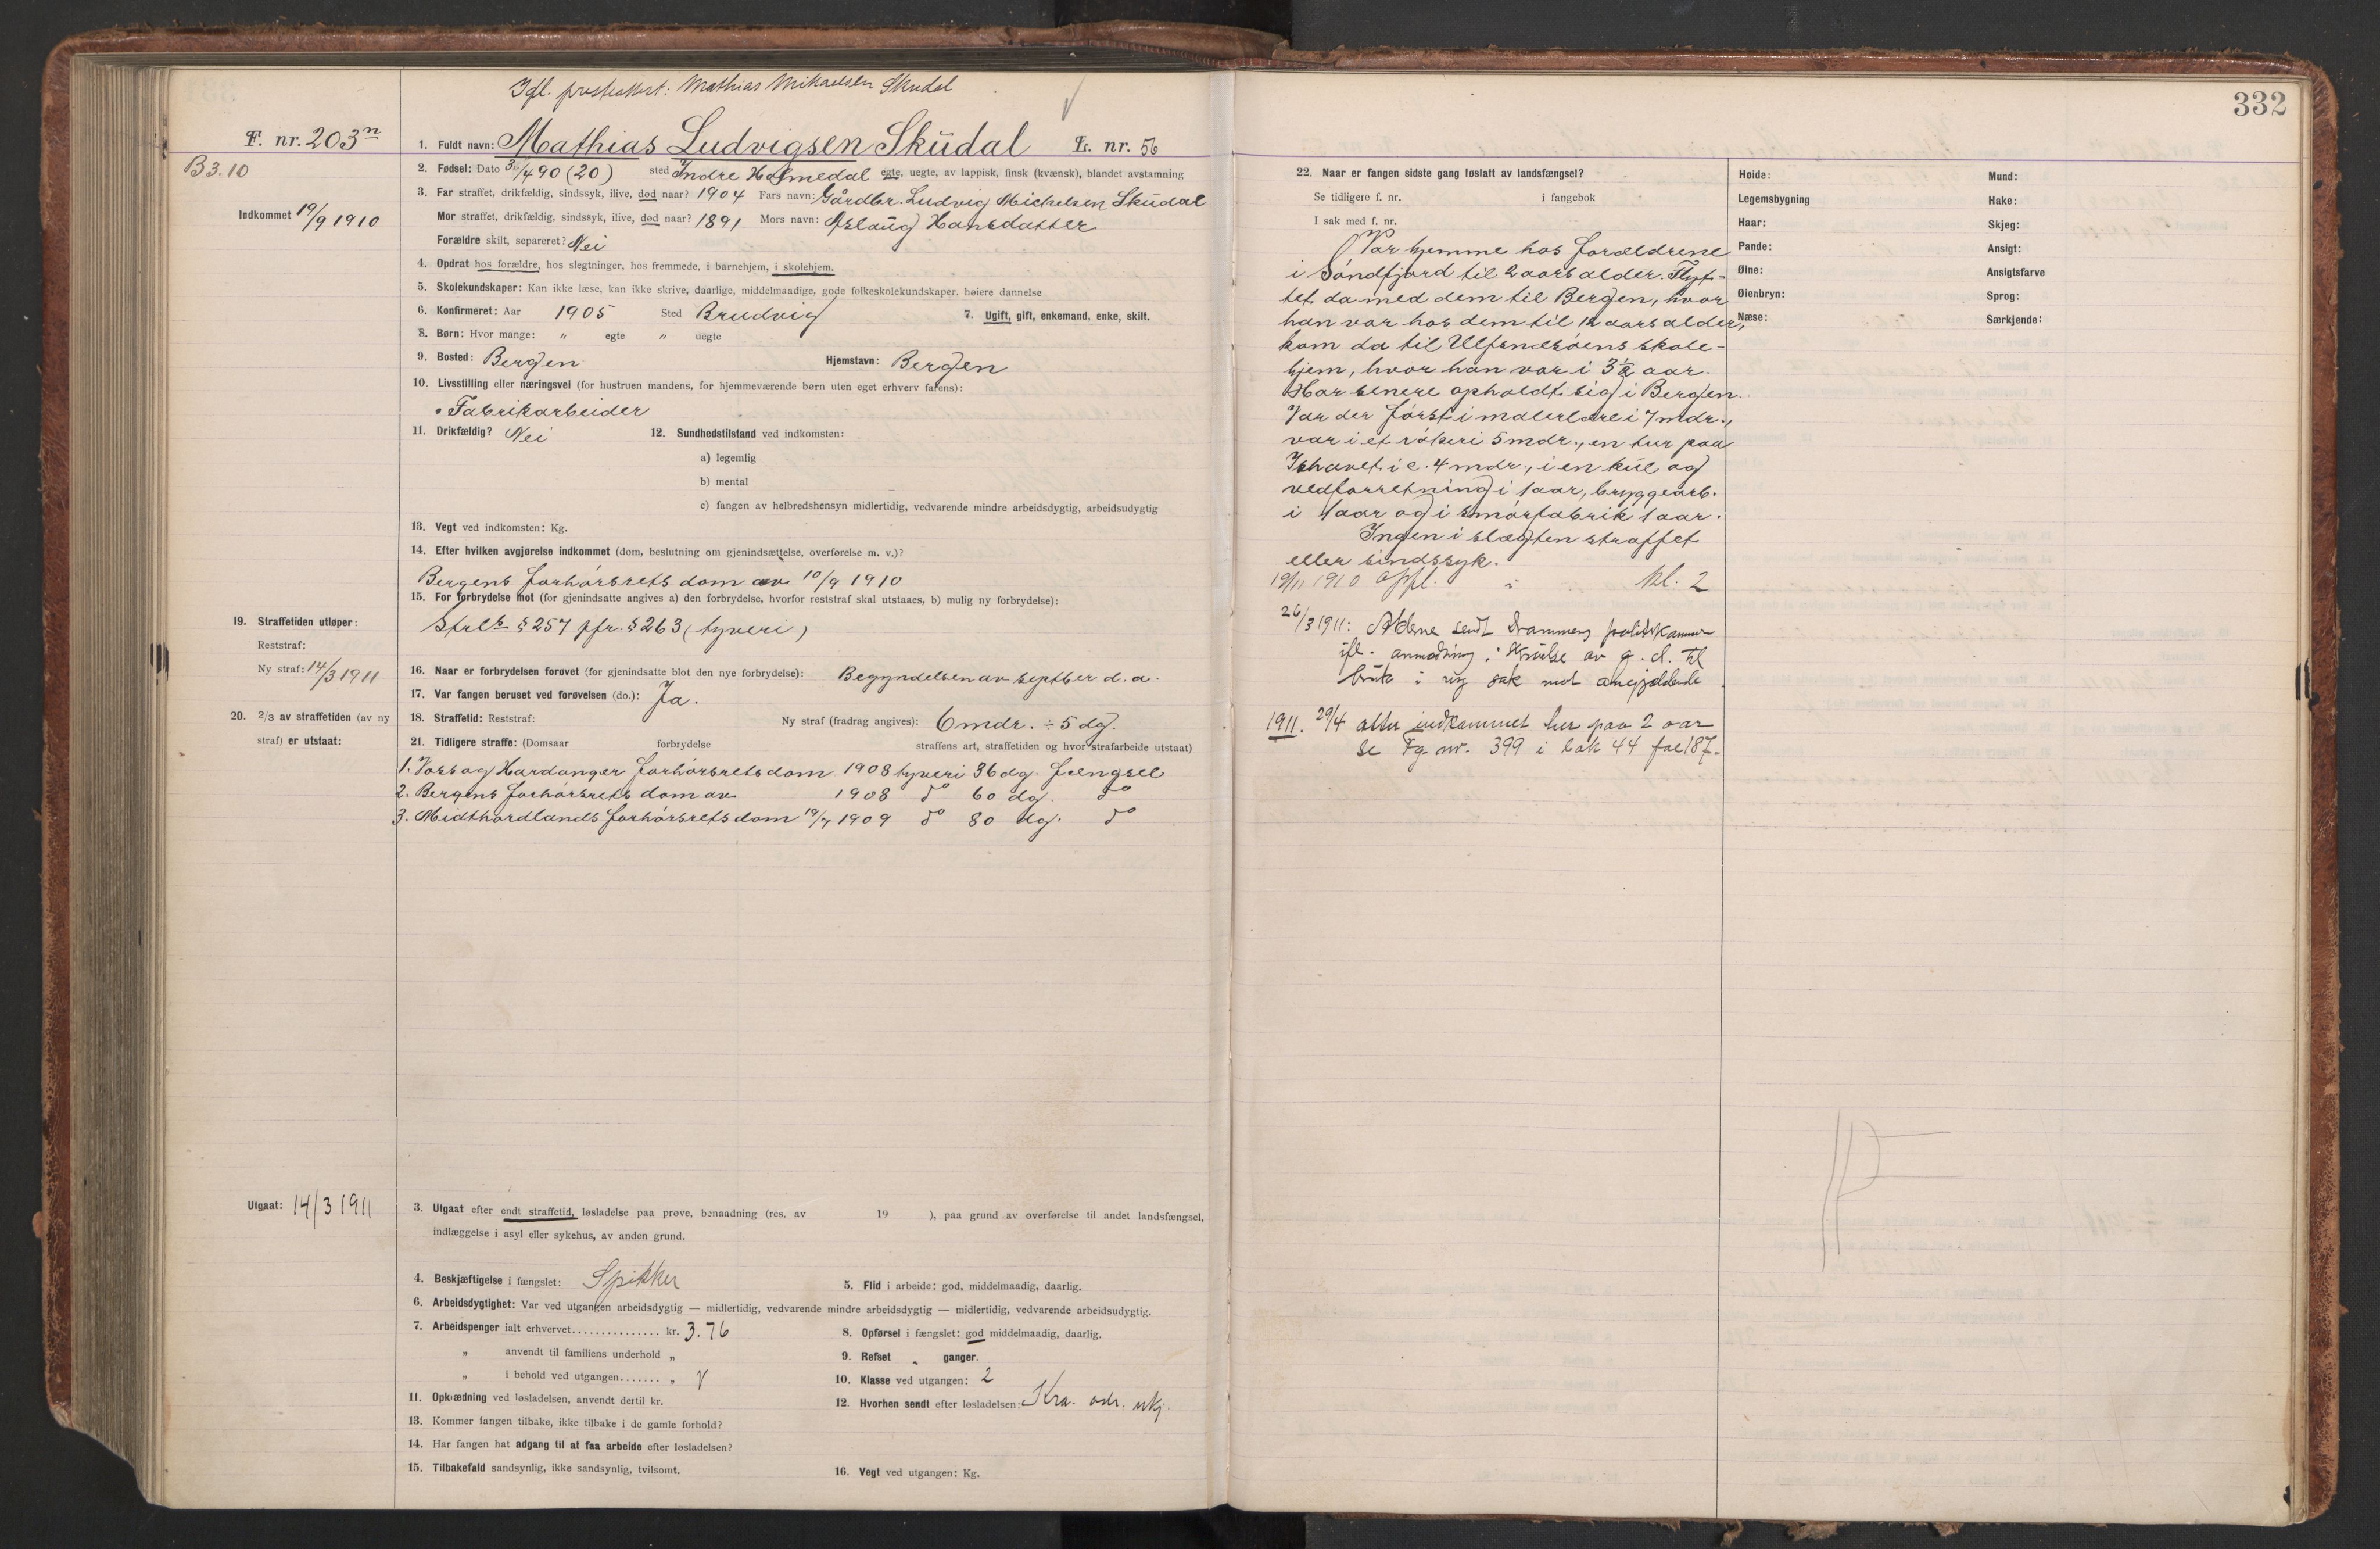 332
Ifl. prestattest: Mathias Mikaelsen Skudal
F. nr. 203n
1. Fuldt navn: Mathias Ludvigsen Skudal L. nr. 56
B 3.10
2. Fødsel: Dato 3/4 90 (20) sted Indre Holmedal egte, uegte, av lappisk, finsk (kvænsk), blandet avstamning
Indkommet 19/9 1910
3. Far straffet, drikfældig, sindssyk, ilive, død naar? 1904 Fars navn: Gårdbr. Ludvig Michelsen Skudal
Mor straffet, drikfældig, sindssyk, ilive, død naar? 1891 Mors navn: Aslaug Hansdatter
Forældre skilt, separeret? Nei
4. Opdrat hos forældre, hos slegtninger, hos fremmede, i barnehjem, i skolehjem.
5. Skolekundskaper: Kan ikke læse, kan ikke skrive, daarlige, middelmaadige, gode folkeskolekundskaper. høiere dannelse
6. Konfirmeret: Aar 1905 Sted Brudvig 7. Ugift, gift, enkemand, enke, skilt.
8. Børn: Hvor mange: " egte " uegte
9. Bosted: Bergen Hjemstavn: Bergen
10. Livsstilling eller næringsvei (for hustruen mandens, for hjemmeværende børn uten eget erhverv farens):
Fabrikarbeider
11. Drikfældig? Nei 12. Sundhedstilstand ved indkomsten:
a) legemlig
b) mental
c) fangen av helbredshensyn midlertidig, vedvarende mindre arbeidsdygtig, arbeidsudygtig
13. Vegt ved indkomsten: Kg.
14. Efter hvilken avgjørelse indkommet (dom, beslutning om gjenindsættelse, overførelse m. v.)?
Bergens forhørsrets dom av 10/9 1910
15. For forbrydelse mot (for gjenindsatte angives a) den forbrydelse, hvorfor reststraf skal utstaaes, b) mulig ny forbrydelse):
Strl. § 257 jfr. § 263 (tyveri)
19. Straffetiden utløper:
Reststraf:
Ny straf: 14/3 1911
16. Naar er forbrydelsen forøvet (for gjenindsatte blot den nye forbrydelse): Begyndelsen av septber d.a.
17. Var fangen beruset ved forøvelsen (do.): Ja.
20. 2/3 av straffetiden (av ny straf) er utstaat:
18. Straffetid: Reststraf: Ny straf (fradrag angives): 6 mdr. ÷ 5 dg.
21. Tidligere straffe: (Domsaar forbrydelse straffens art, straffetiden og hvor strafarbeide utstaat)
1. Voss og Hardanger forhørsrets dom 1908 tyveri 36 dg. fængsel
2. Bergens forhørsrets dom av 1908 do 60 dg. do
3. Midthordlands forhørsrets dom 19/7 1909 do 80 dg. do
Utgaat: 14/3 1911
3. Utgaat efter endt straffetid, løsladelse paa prøve, benaadning (res. av 19 ), paa grund av overførelse til andet landsfængsel,
indlæggelse i asyl eller sykehus, av anden grund.
4. Beskjæftigelse i fængslet: Spikker 5. Flid i arbeide: god, middelmaadig, daarlig.
6. Arbeidsdygtighet: Var ved utgangen arbeidsdygtig — midlertidig, vedvarende mindre arbeidsdygtig — midlertidig, vedvarende arbeidsudygtig.
7. Arbeidspenger ialt erhvervet............... kr. 3.76 8. Opførsel i fængslet: god middelmaadig, daarlig.
" anvendt til familiens underhold " 9. Refset " ganger.
" i behold ved utgangen....... " 10. Klasse ved utgangen: 2
11. Opklædning ved løsladelsen, anvendt dertil kr. 12. Hvorhen sendt efter løsladelsen: Kra. adr. ukj.
13. Kommer fangen tilbake, ikke tilbake i de gamle forhold?
14. Har fangen hat adgang til at faa arbeide efter løsladelsen?
15. Tilbakefald sandsynlig, ikke sandsynlig, tvilsomt. 16. Vegt ved utgangen: Kg.
22. Naar er fangen sidste gang løslatt av landsfængsel?
Se tidligere f. nr. i fangebok
I sak med f. nr.
Var hjemme hos forældrene
i Søndfjord til 2 aars alder. Flyt-
tet da med dem til Bergen, hvor
han var hos dem til 12 aars alder,
kom da til Ulfsnesøens skole-
hjem, hvor han var i 3 1/2 aar.
Har senere opholdt sig i Bergen.
Var der først i malerlære i 7 mdr.,
var i et røkeri 5 mdr., en tur paa
Ishavet i c. 4 mdr., i en kul og
vedforretning i 1 aar, bryggearb.
i 1 aar og i smørfabrik 1 aar.
Ingen i slægten straffet
eller sindssyk.
19/11 1910 Opfl. i kl. 2
26/3 1911: Akterne sendt Drammens politikammer
ifl. anmodning i skrivelse av g. d. til
bruk i ny sak mot angjældende
1911. 29/4 atter indkommet her paa 2 aar
se Fg. nr. 399 i bok 44 fol 187.
Høide: Mund:
Legemsbygning Hake:
Haar: Skjeg:
Pande: Ansigt:
Øine: Ansigtsfarve
Øienbryn: Sprog:
Næse: Særkjende: